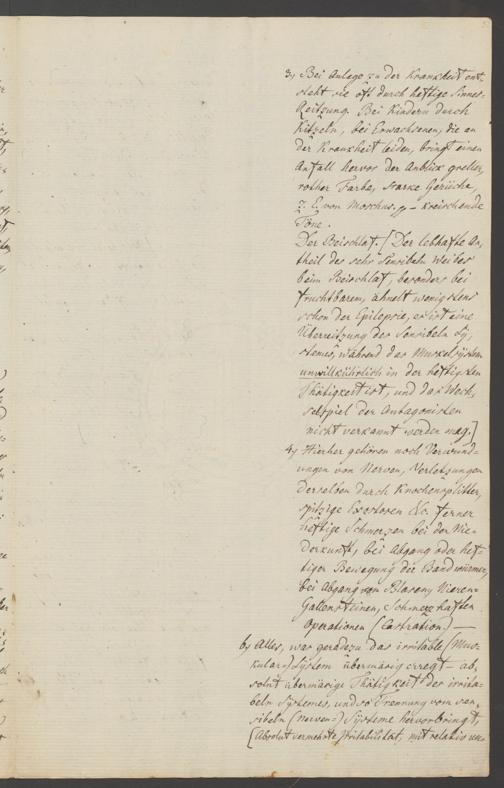 3, Bei Anlage zu der Krankheit ent-
steht sie oft durch heftige Sinnes-
Reitzung. Bei Kindern durch
Kitzeln, bei Erwachsenen, die an
der Krankheit leiden, bringt einen
Anfall hervor der Anblick greller,
rother Farbe, starke Gerüche,
z. E. von Moschus. – kreischende
Töne.
Der Beischlaf. [Der lebhafte An-
theil des sehr sensibeln Weibes
beim Beischlaf, besonders bei
fruchtbaren, ähnelt wenigstens
schon der Epilepsie, es ist eine
Überreitzung des Sensibeln Sy-
stemes, während das Muskelsystem
unwillkührlich in der heftigsten
Thätigkeit ist, und das Wech-
selspiel der Antagonisten
nicht verkannt werden mag.]
4, Hierher gehören noch Verwund-
ungen von Nerven, Verletzungen
derselben durch Knochensplitter,
spitzige Exostosen &c. ferner
heftige Schmerzen bei der Nie-
derkunft, bei Abgang oder hef-
tiger Bewegung der Bandwürmer,
bei Abgang von Blasen, Nieren-
Gallensteinen, Schmerzhaften
Operationen (Castration) —
b, Alles, was geradezu das irritable (Mus-
kular-) System übermäsig erregt – ab-
solut übermäsige Thätigkeit des irrita-
beln Systemes, und so Trennung vom sen-
sibeln (nerven-) Systeme hervorbringt,
(Absolut vermehrte Irritabilität, mit relativ ver-